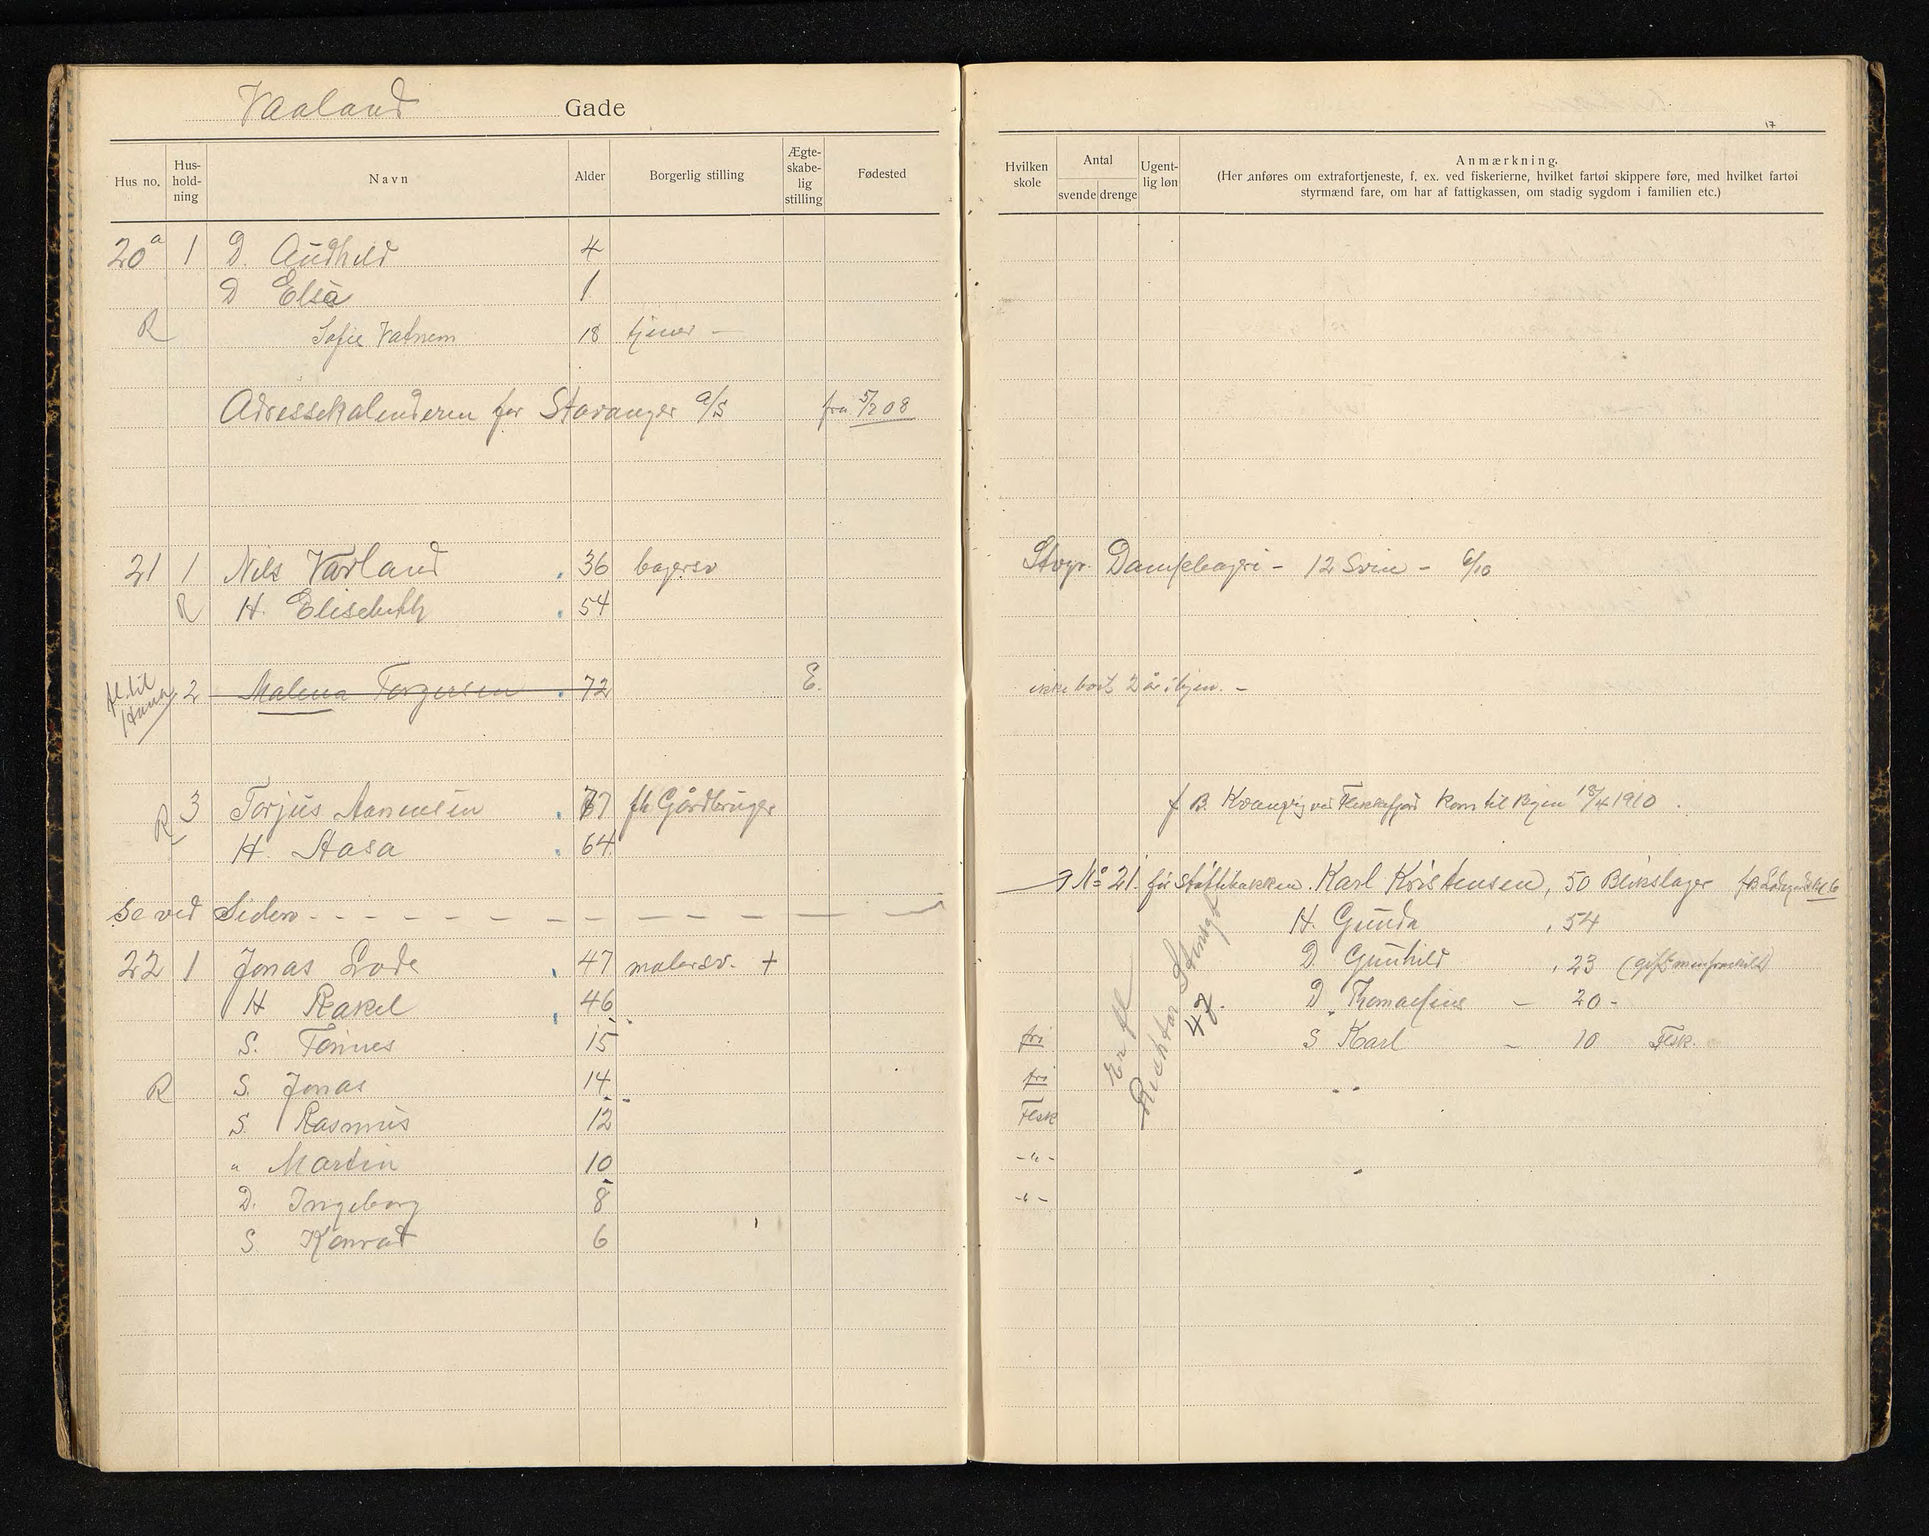 Vaaland Gade
Hus no. Hus-hold-ning Navn Alder Borgerlig stilling Ægte-skabe-lig stilling Fødested
20a 1 D. Audhild 4
D Elsa 1
R Sofie Vatnem 18 tjener —
Adressekalenderen for Stavanger a/s fra 5/2 08
21 1 Nils Varland 36 bagersv
R H. Elisebeth 54
fl. til Hana 2 Malena Torgersen 72 E.
R 3 Torjus Aanensen 77 fh Gårdbruger
H. Aasa 64
Se ved Siden - - - - - - - - -
22 1 Jonas Lode 47 malersv. +
H Rakel 46
S. Tønnes 15
R S. Jonas 14
S. Rasmus 12
" Martin 10
D. Ingeborg 8
S Konrad 6
17
Hvilken skole Antal svende drenge Ugent-lig løn Anmærkning.
(Her anføres om extrafortjeneste, f. ex. ved fiskerierne, hvilket fartøi skippere føre, med hvilket fartøi
styrmænd fare, om har af fattigkassen, om stadig sygdom i familien etc.)
Stvgr. Dampbageri - 12 Svine - 6/10
ikke boet 2 år i byen. -
f B. Kvanvig ved Flekkefjord kom til byen 18/4 1910.
No 21 før Støttebakken. Karl Kristensen, 50 Blikslager
H. Gunda 54
D Gunhild 23 (gift men fraskilt)
D. Thomasine - 20 -
fri S Karl - 10 Flsk.
fri
Flsk
- " -
- " -
Er fl
Richter Stensgt
47.